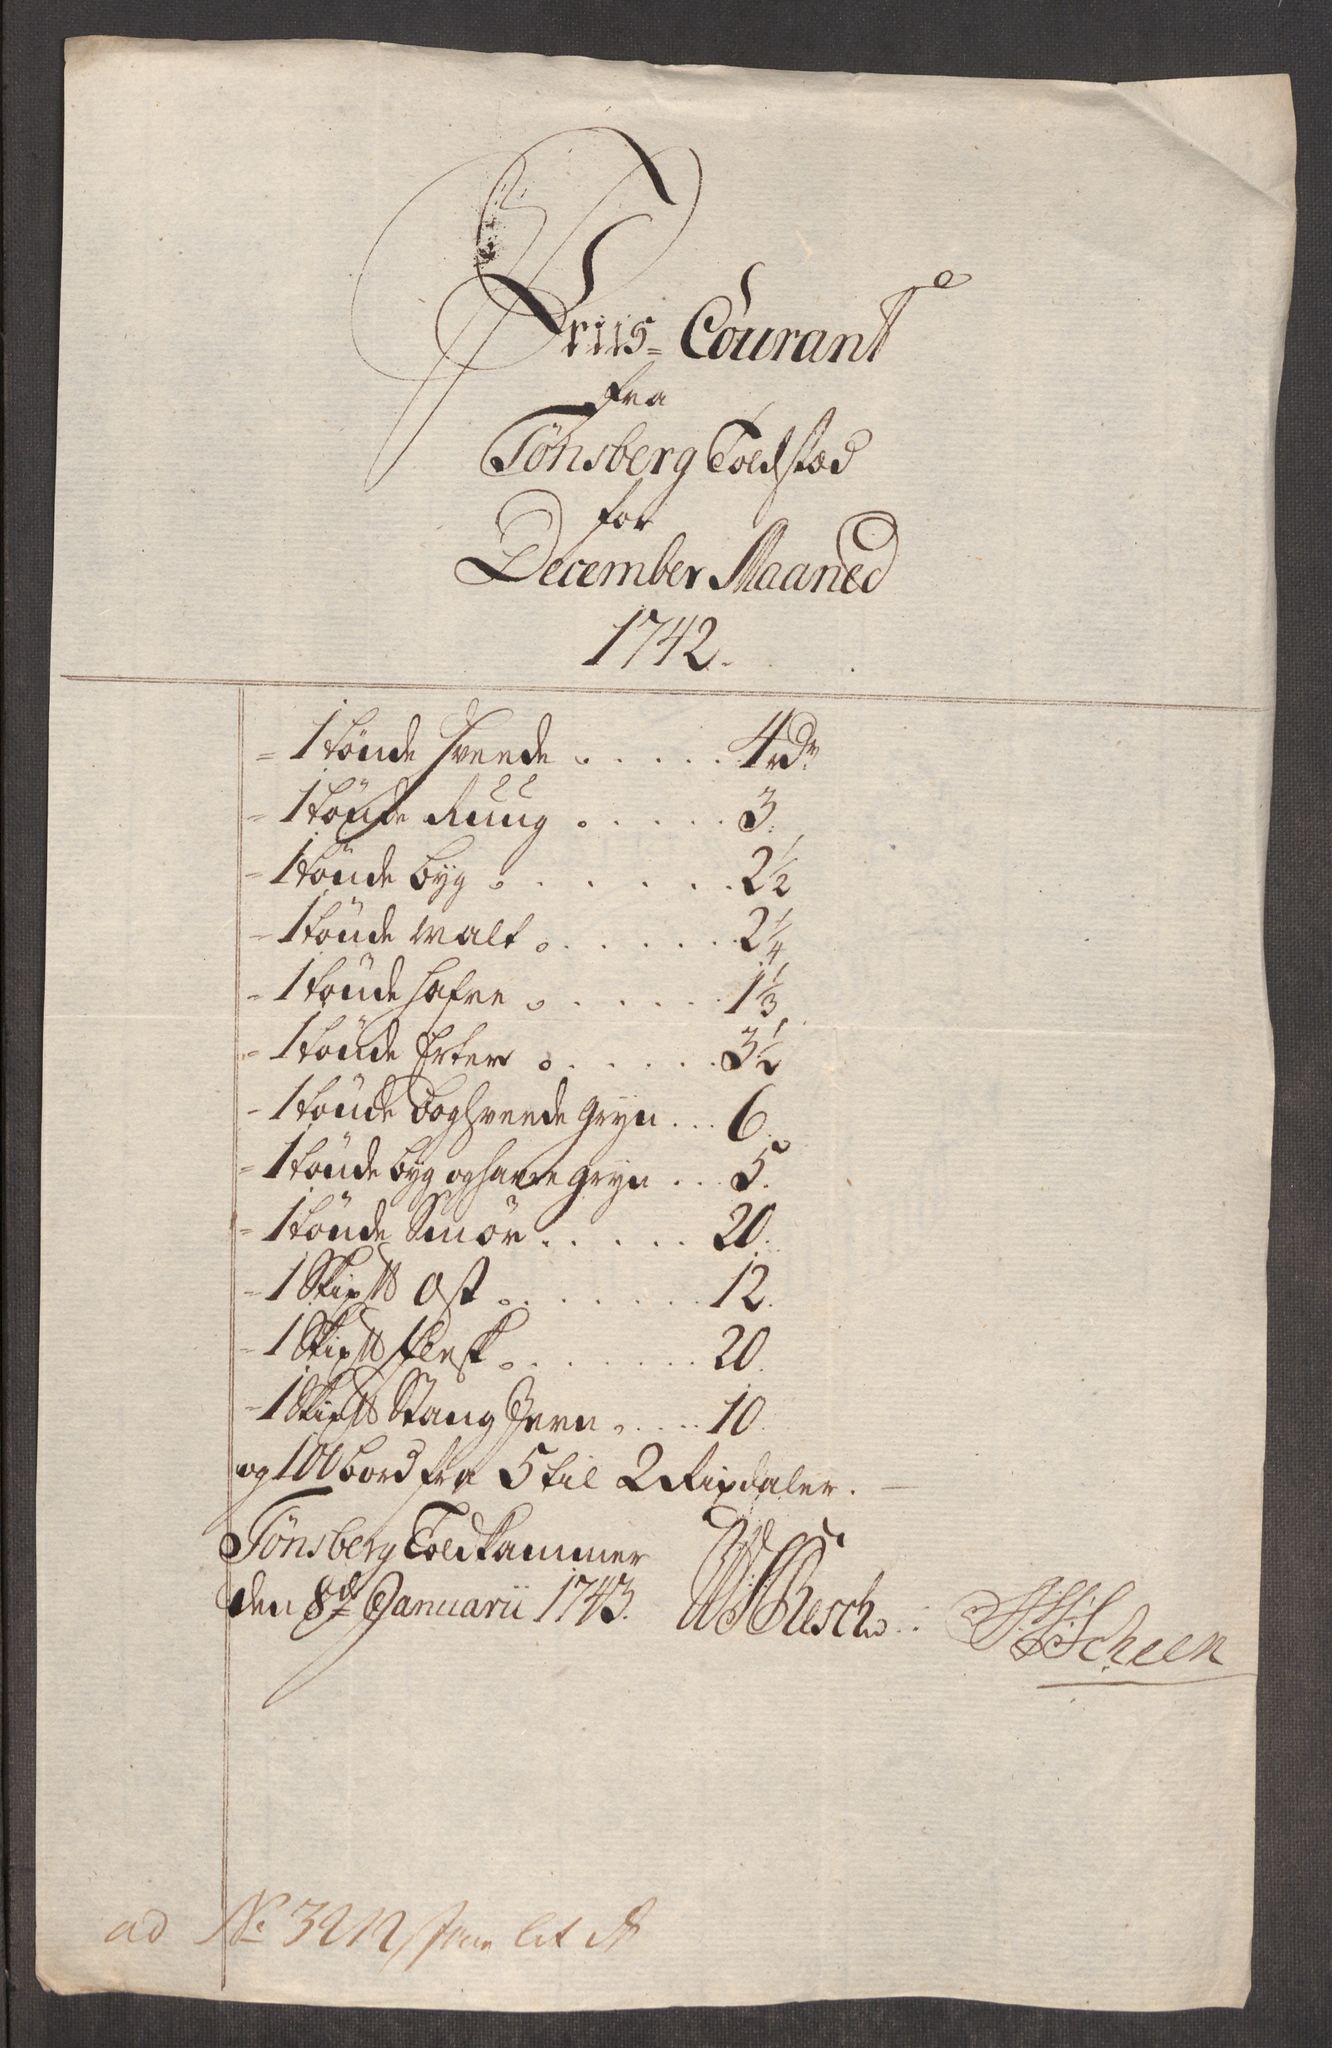 Priis-Courant
fra
Tønsberg Toldstæd
for
December Maaned
1742.
= 1 tønde Hveede . . . . . 4 rdr
= 1 tønde Ruug . . . . . 3.
= 1 tønde byg . . . . . . 2½
= 1 tønde Malt . . . . . . 2¼
= 1 tønde hafre . . . . . . 1⅓
= 1 tønde Erter . . . . . . 3½
= 1 tønde boghveede gryn . . . 6.
= 1 tønde byg og haure gryn . . . 5.
= 1 tønde Smør . . . . . 20.
= 1 Skip℔ Ost . . . . . . . 12.
= 1 Skip℔ flesk . . . . . . . 20.
= 1 Skip℔ Stang Jern . . . . 10.
og 100 bord fra 5 til 2 Rixdaler. —
Tønsberg Toldkammer
den 8de Januarii 1743.
Resch
Scheen
ad No
lit A